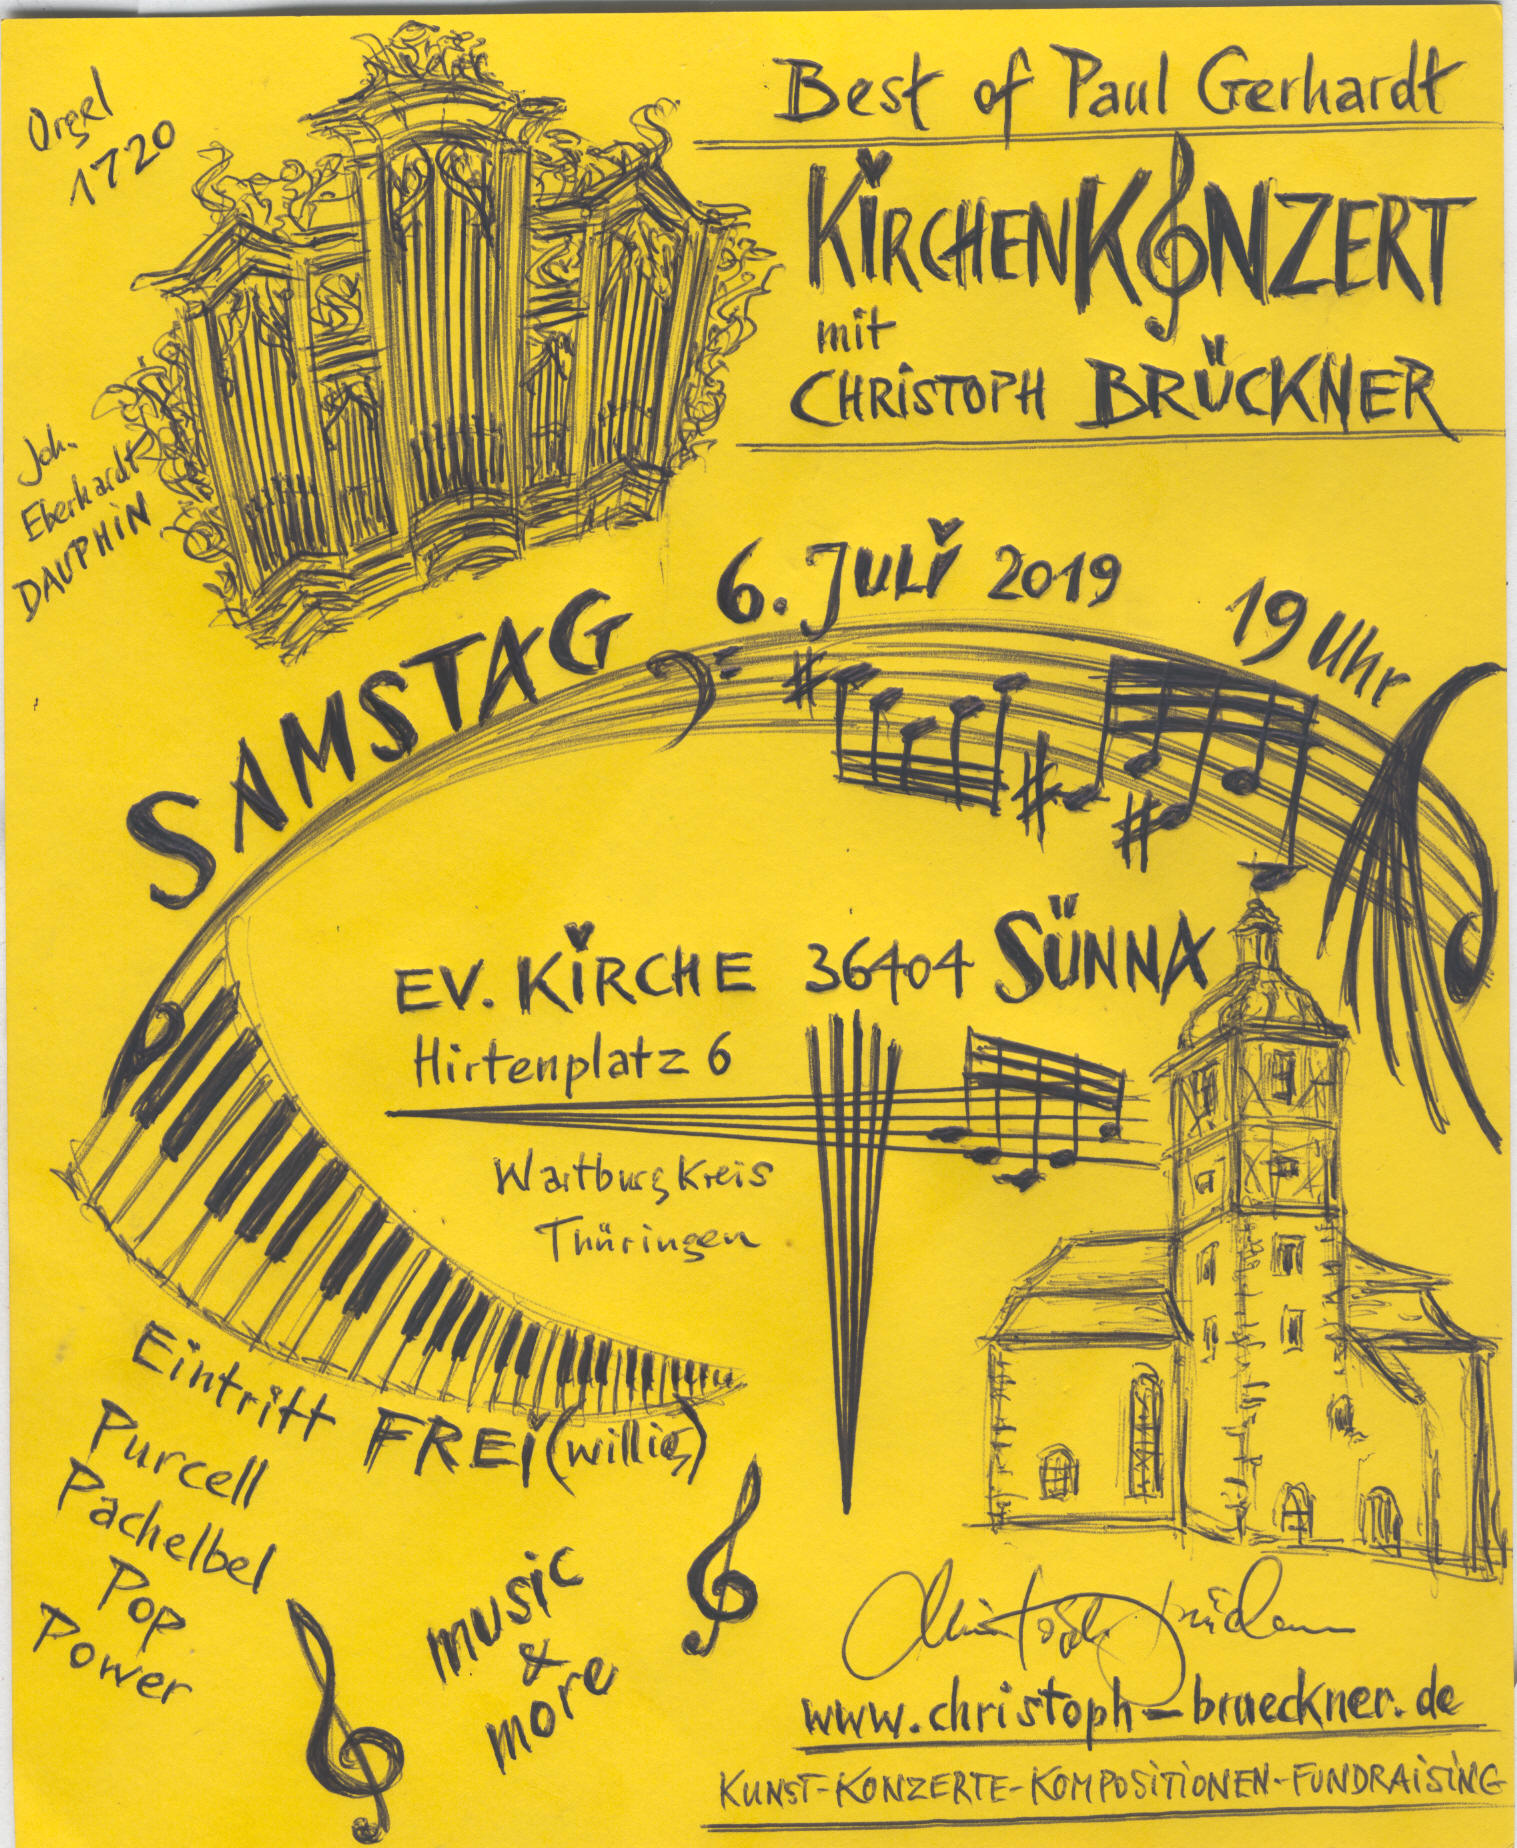 Orgel
1720
Best of Paul Gerhardt
KiRCHENKONZERT
mit
CHRiSTOPH BRÜCKNER
Joh.
Eberhardt
DAUPHiN
SAMSTAG 6. JULi 2019 19 Uhr
EV. KiRCHE 36404 SÜNNA
Hirtenplatz 6
Wartburgkreis
Thüringen
Eintritt FREi (willig)
Purcell
Pachelbel
Pop
Power
music
&
more
Christoph Brückner
www.christoph-brueckner.de
KUNST-KONZERTE-KOMPOSiTiONEN-FUNDRAiSiNG